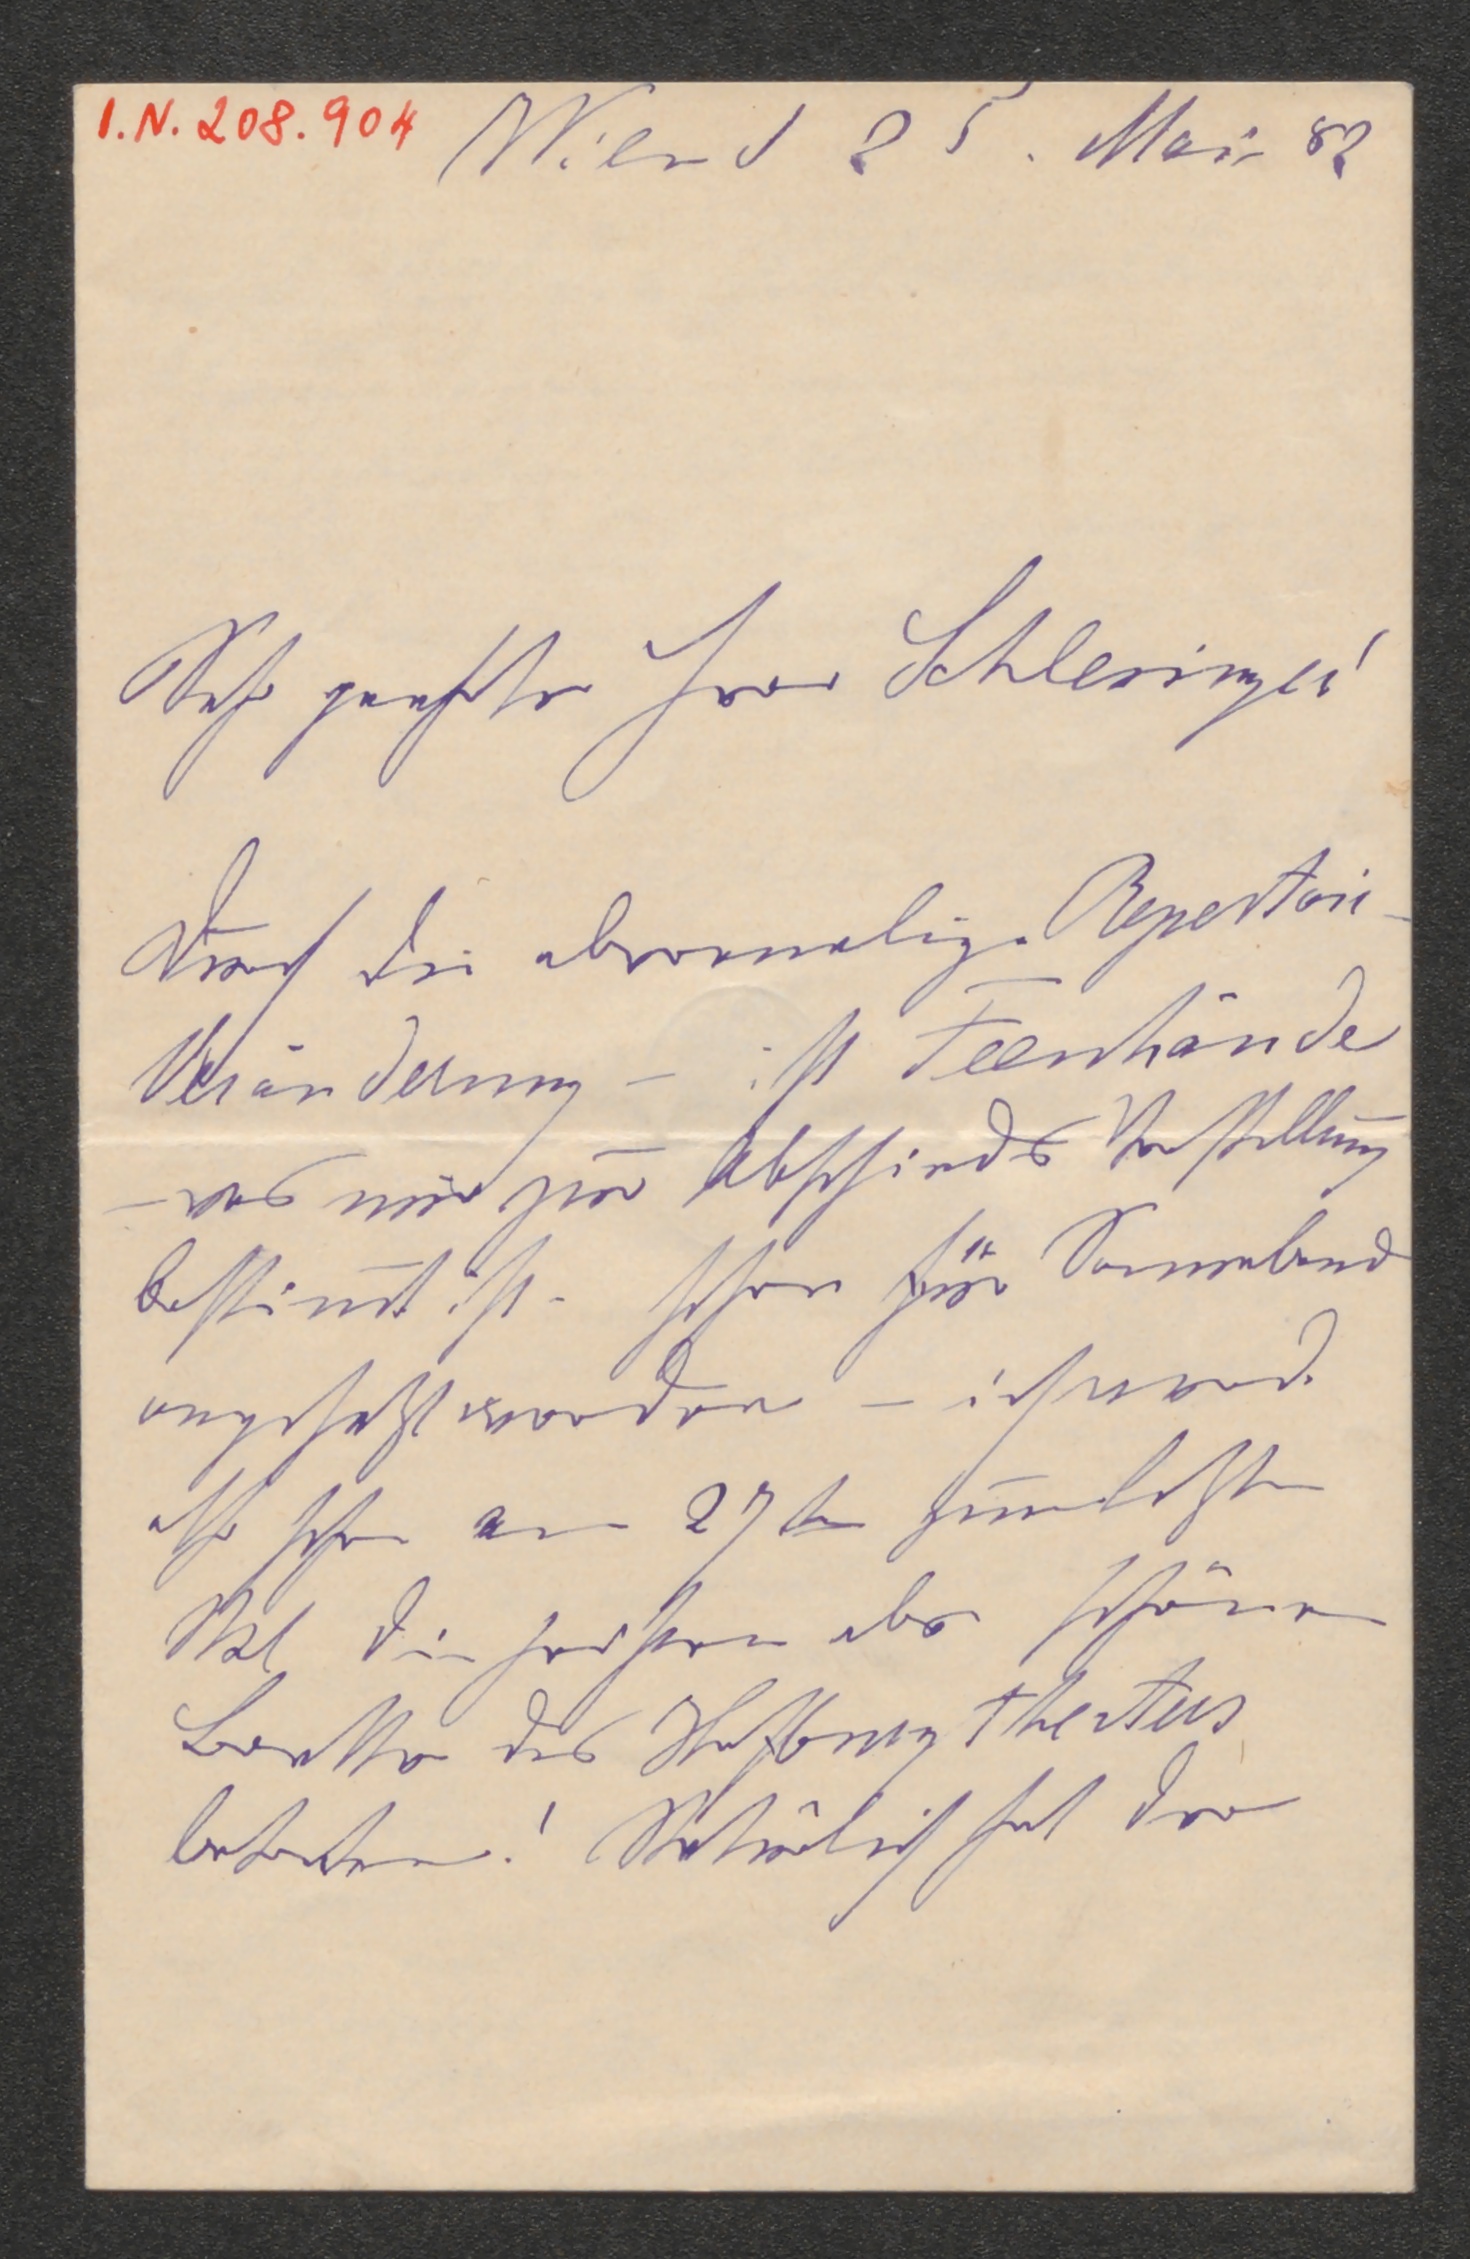 I.N. 208.904
Wien d 25. Mai 82
Sehr geehrter Herr Schlesinger!
Durch die abermalige Repertoir-
Veränderung – ist Feenhände
– was mir zur Abschieds Vorstellung
bestimt ist – schon für Sonnabend
angesetzt worden – ich werde
also schon am 27ten zum letzten
Mal die heißen aber schönen
Bretter des Hofburgtheaters
betreten! Natürlich hat der